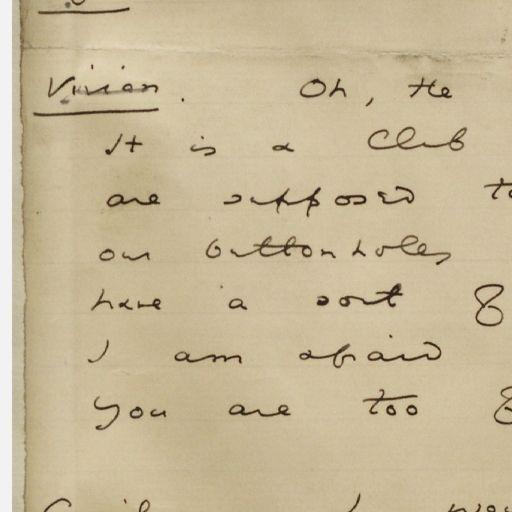 Vivian. Oh, the
It is a Club
are supposed to
our buttonholes
have a sort
I am afraid
you are too